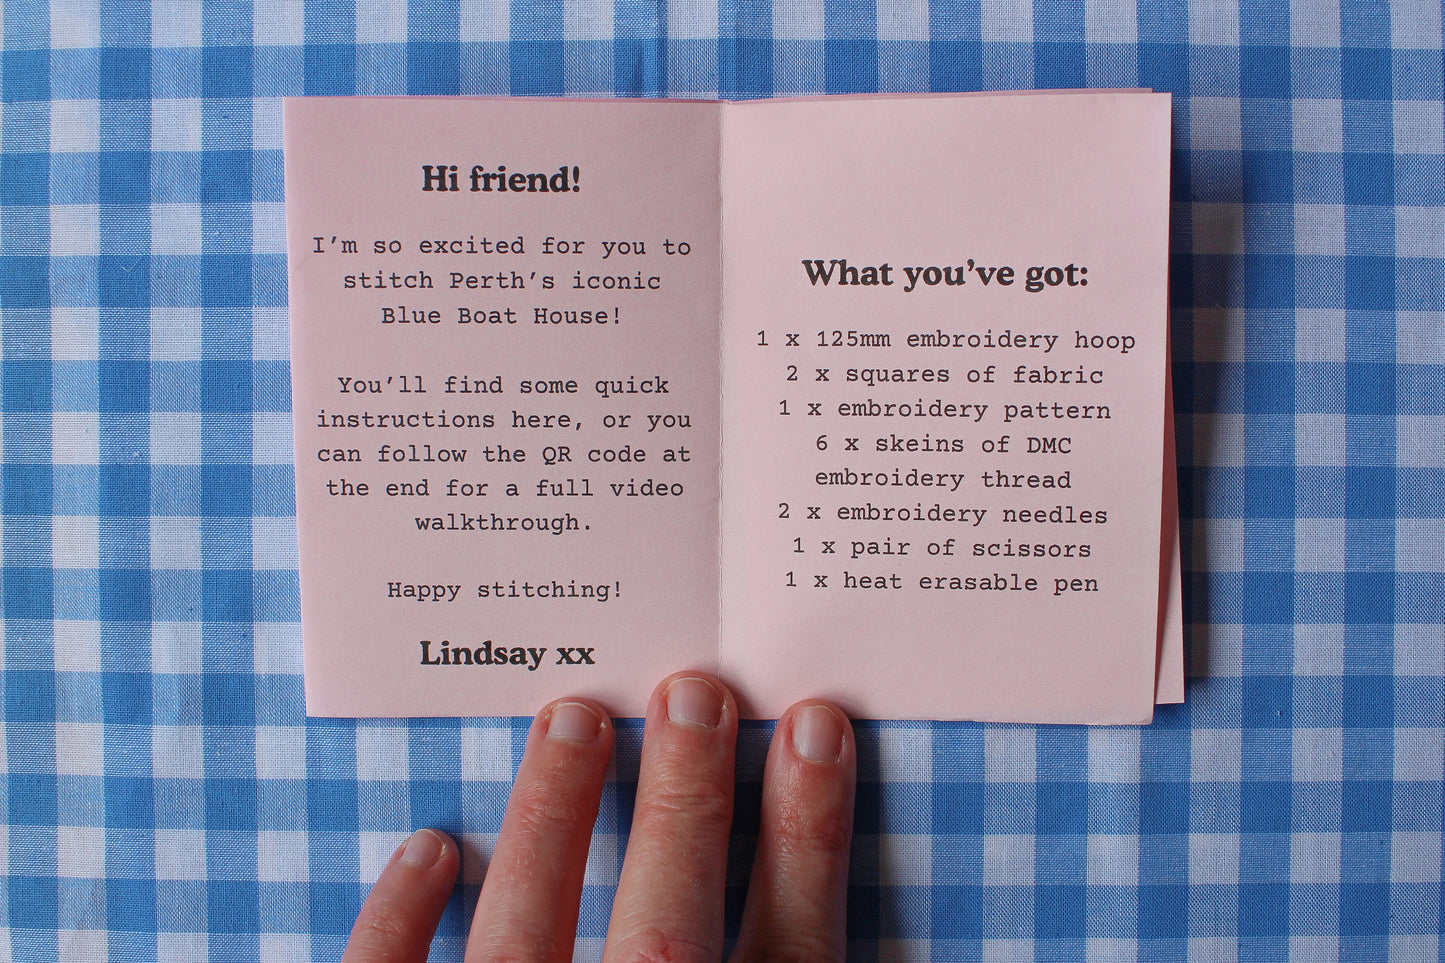 Hi friend!
I’m so excited for you to
stitch Perth’s iconic
Blue Boat House!
You’ll find some quick
instructions here, or you
can follow the QR code at
the end for a full video
walkthrough.
Happy stitching!
Lindsay xx
What you’ve got:
1 x 125mm embroidery hoop
2 x squares of fabric
1 x embroidery pattern
6 x skeins of DMC
embroidery thread
2 x embroidery needles
1 x pair of scissors
1 x heat erasable pen